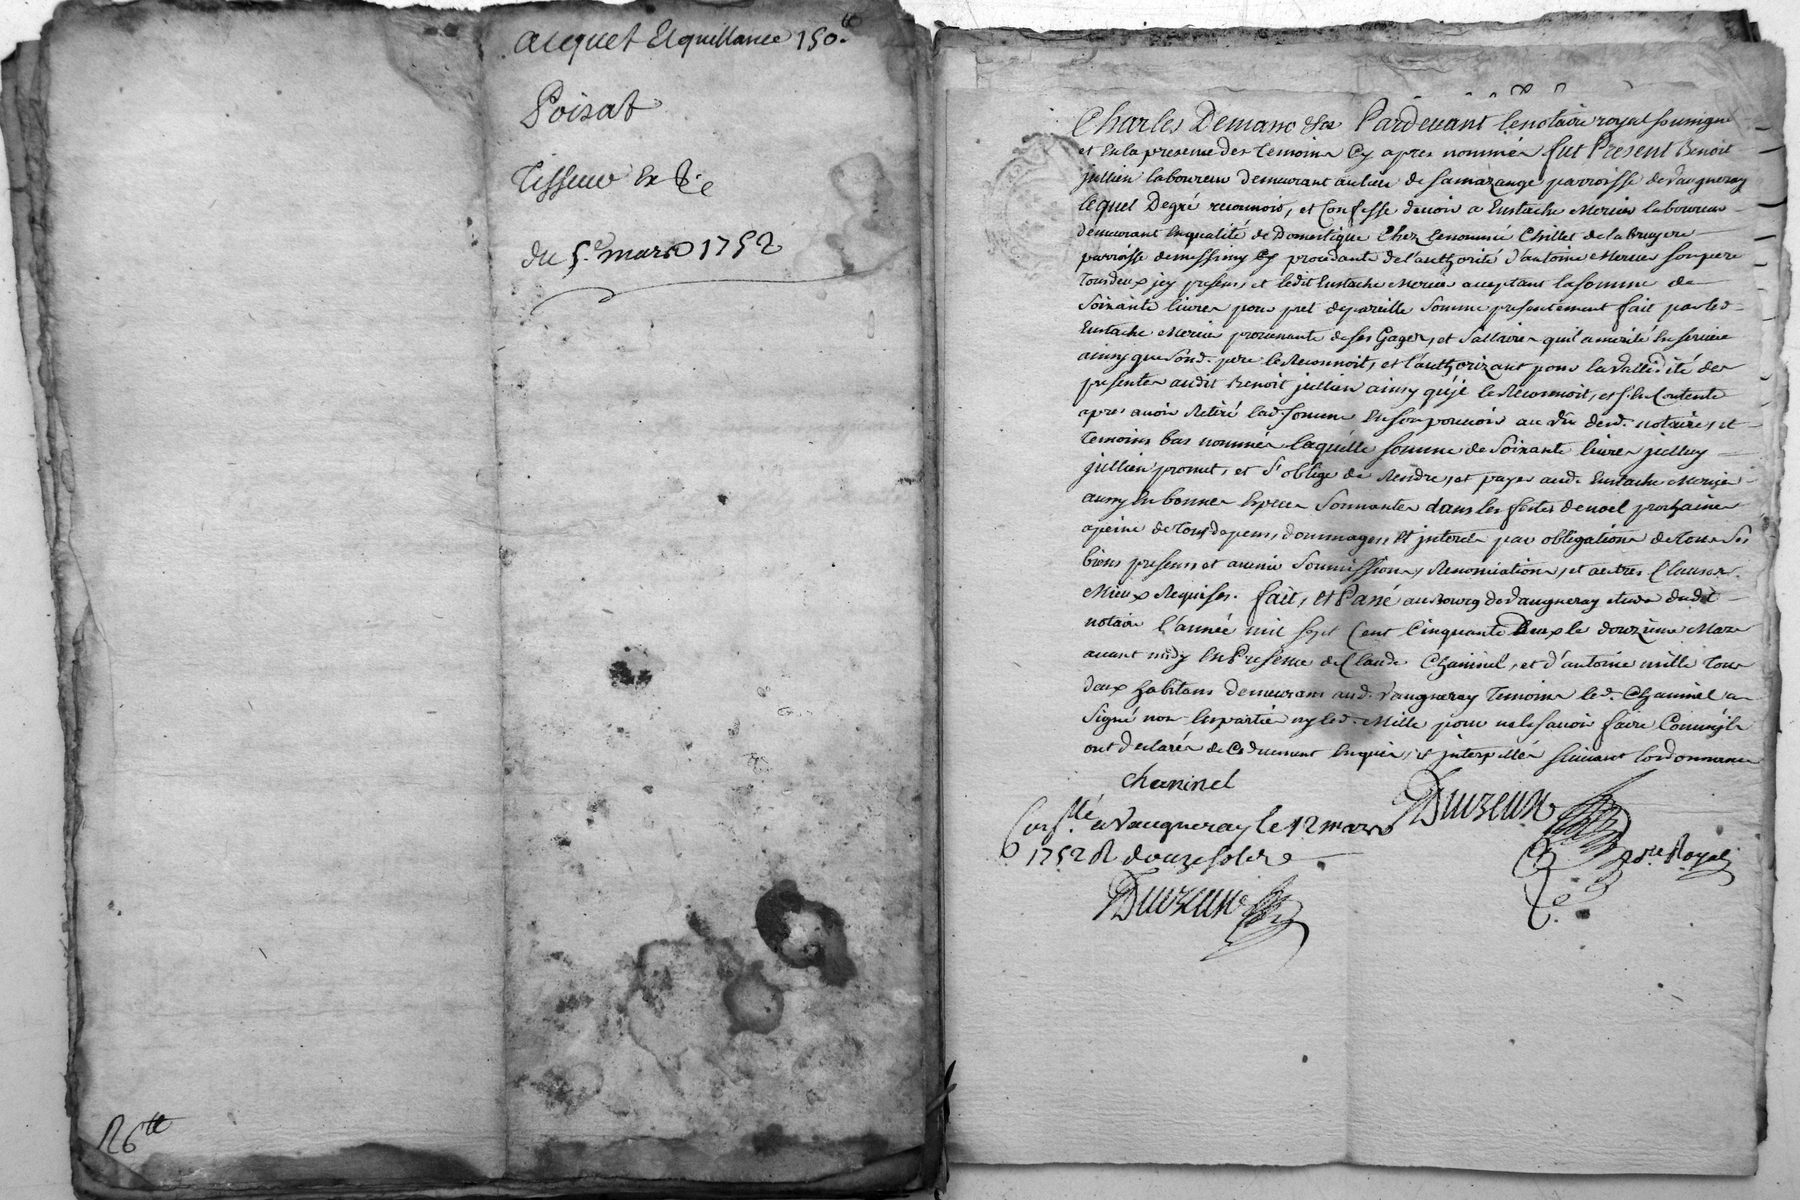 acquet Et quittance 150.tt
Poizat
Tisseur Ex
du 5.e mars 1752
26tt
Charles Demanc Pardevant le notaire royal soussigné
et En la presence des temoins Cy apres nommés fut Present Benoit
jullien laboureur demeurant au lieu de parroisse de Vaugneray
lequel Degré reconnois, et Confesse devoir a Eustache Mercier laboureur
demeurant En qualité de Domestique Chez le nommé Chillet de la bruyere
parroisse de messimy procedant de l'authorité d'antoine Mercier son pere
Tous deux jcy presens, et ledit Eustache Mercier acceptant la somme de
Soixante livres pour pret de pareille somme presentement fait par led.
Eustache Mercier provenante de ses Gages, et Sallaires quil a merité En service
ainsy que Sond. pere le Reconnoit, et l'authorizant pour la vallidité des
presentes audit Benoit jullien ainsy qu'jl le Reconnoit, et s'En Contente
apres avoir Retiré lad. somme En son pouvoir au vû dud. notaire, et
temoins bas nommés laquelle somme de Soixante livres jcelluy
jullien promet, et S'oblige de Rendre, et payer aud. Eustache Mercier
aussy En bonnes Especes Sonnantes dans les festes de noel prochaines
a peine de tous depens, dommages, Et jnterets par obligations de tous Ses
biens presens, et avenir Soumissions, Renonciations, et autres Clauses
Mieux Requises. fait, Et Passé au Bourg de Vaugneray etude dudit
notaire l'année mil sept Cent Cinquante Deux le douzieme Mars
avant midy En Presence de Claude Chaninel, et d'antoine mille tous
deux habitans demeurans aud. Vaugneray temoins led. Chaninel a
Signé non les parties ny led. Mille pour ne le savoir faire Comm'jls
ont declarés de Ce duement Enquis, et jnterpellés suivant l'ordonnance
chaninel
Duvzeux
Con.llé a Vaugneray le 12 mars
n.re Royal
1752 R douze sols
Duvzeux